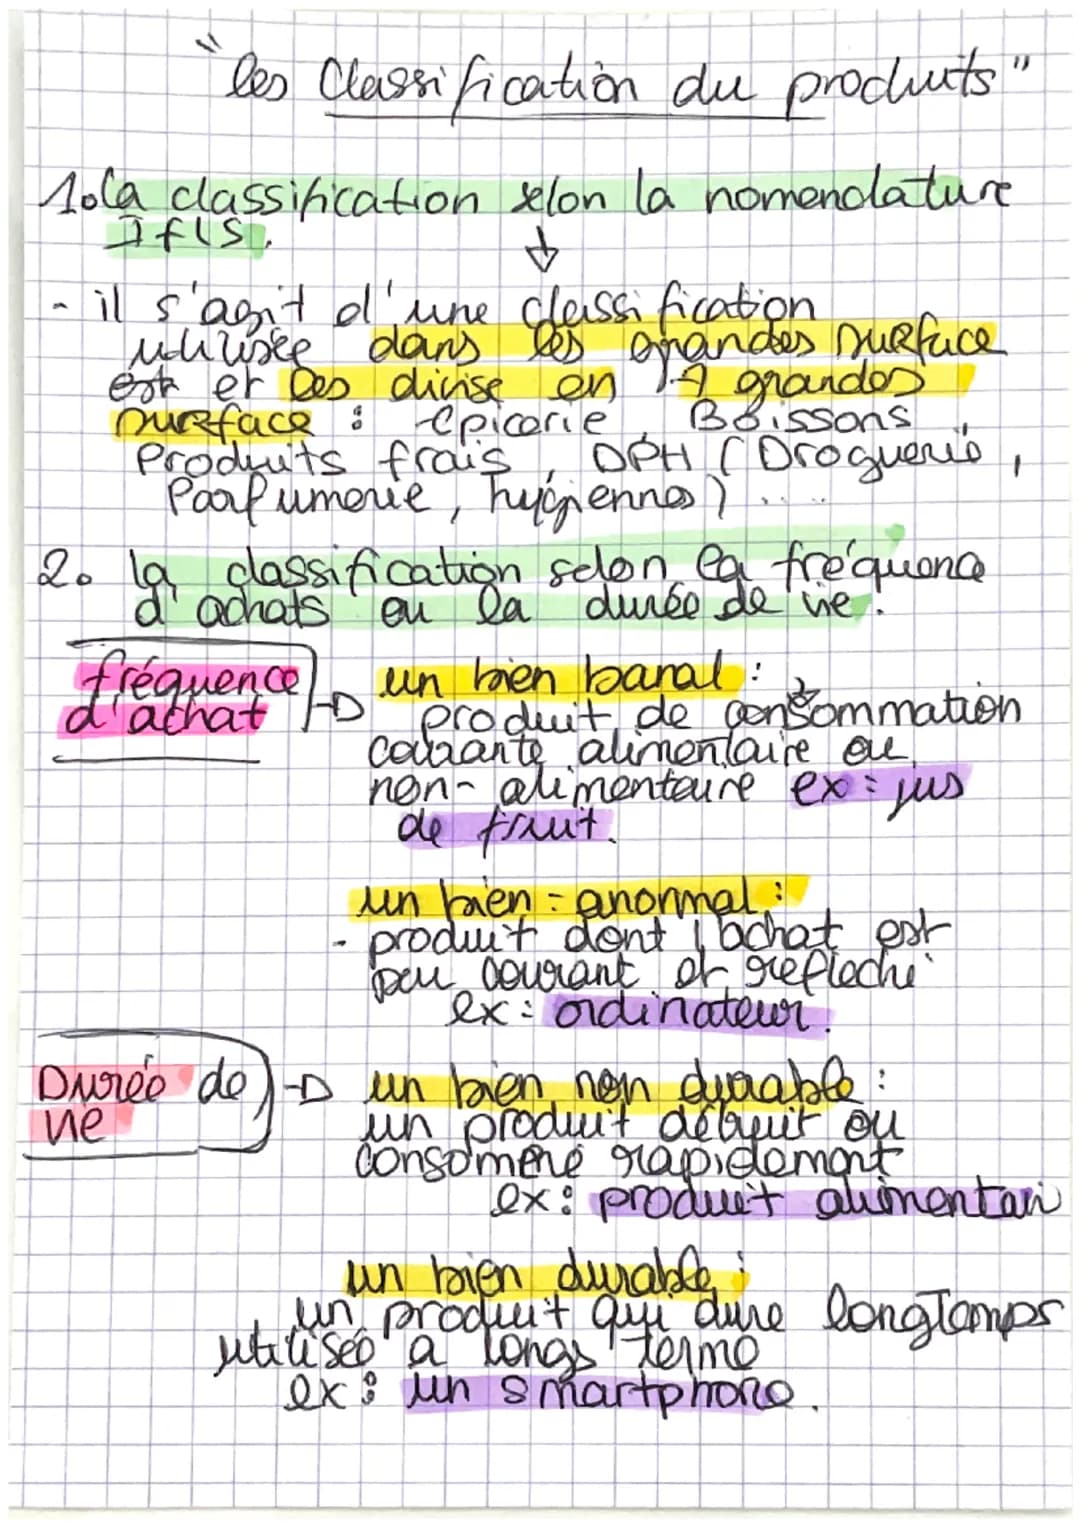 "les Classification du produits"
1. la classification selon la nomenclature
Ifls.
- il s'agit d'une classification
utilisée dans les grandes surface
est et les divise en 7 grandes
surface : épicerie, Boissons,
Produits frais, DPH (Droguerie,
Parfumerie, hygiennes) .....
2. la classification selon la fréquence
d'achats ou la durée de vie.
fréquence
d'achat
un bien banal :
produit de consommation
courante alimentaire ou
non-alimentaire ex : jus
de fruit.
un bien - anormal :
- produit dont l'achat est
peu courant et réflechi
ex : ordinateur.
Durée de
vie
un bien non durable :
un produit détruit ou
consomére rapidement
ex : produit alimentai
un bien durable :
un produit qui dure longTemps
utilisée a longs terme
ex : un smartphone.